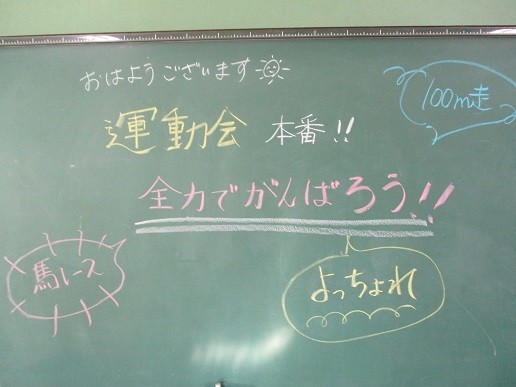 おはようございます
100m走
運動会 本番!!
全力でがんばろう!!
馬レース
よっちょれ